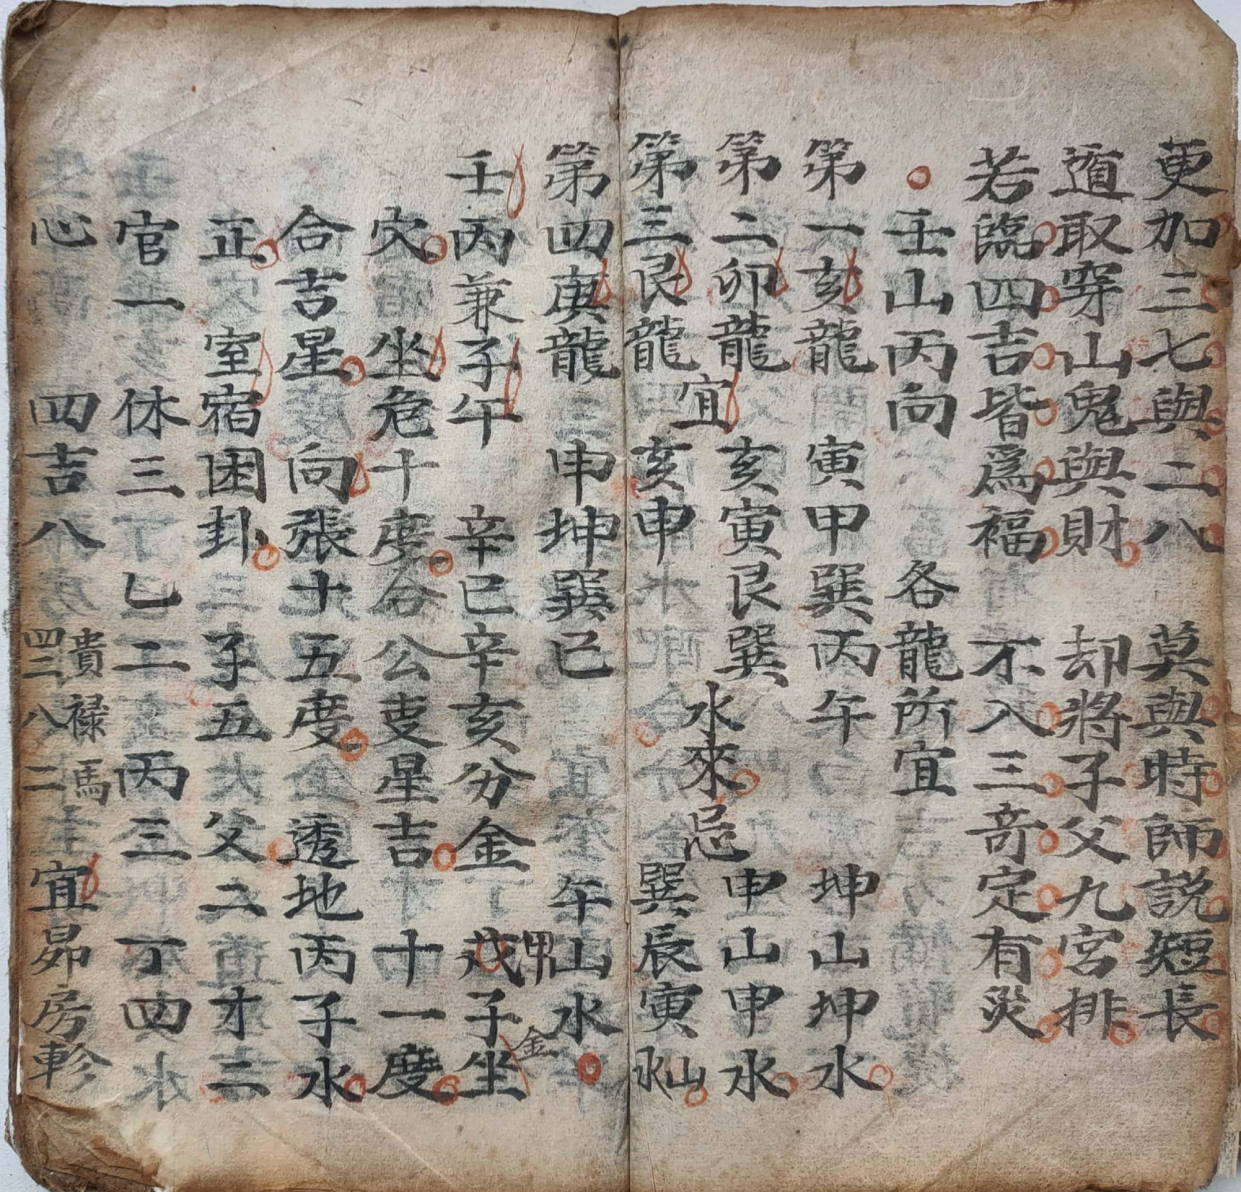 更加三七與二八　莫與時師説短長
遁取穿山鬼與財　却將子父九宮排
若臨四吉皆爲福　不入三奇定有災
壬山丙向　各龍所宜
第一亥龍　寅甲巽丙午　坤山坤水
第二卯龍　亥寅艮巽　申山申水
宜　水來　忌
第三艮龍　亥申　巽辰寅山水
第四庚龍　申坤巽巳　午山水
壬丙兼子午　辛巳辛亥分金　甲子坐金
穴坐危十度合公吏星吉　十一度
合吉星　向張十五度　透地丙子水
正　室宿困卦　子五父二才三
官一　休三丁乙二丙三丁四
心　四吉八　貴禄馬　四二八二　宜昴房軫